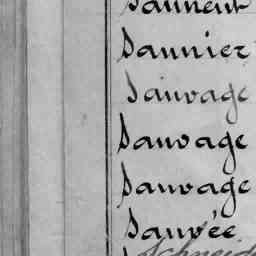 Saunier
Sauvage
Sauvage
Sauvage
Sauvée